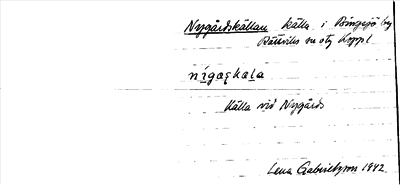 Nygårdskällan källa i Bingsjö by
Rättviks sn otj Koppl
nígoɛkala
Källa vid Nygårds
Lena Gabrielsson 1942